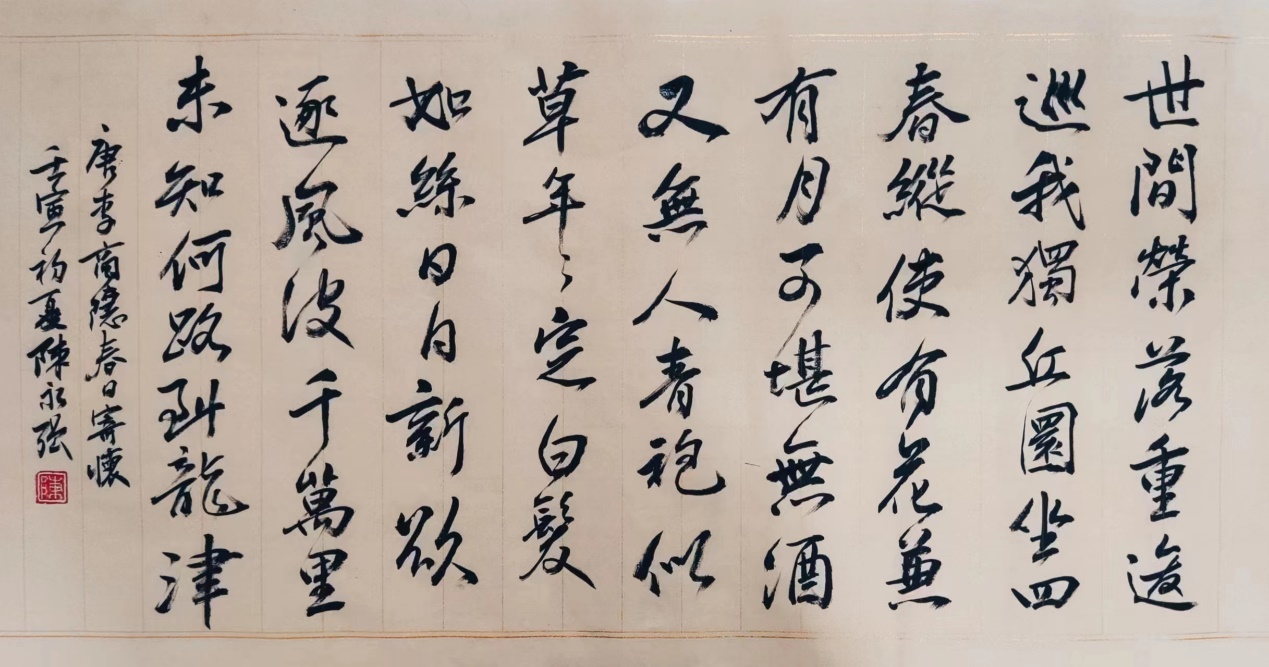 世間榮落重逡
巡我獨丘園坐四
春縱使有花兼
有月可堪無酒
又無人青袍似
草年々定白髮
如絲日日新欲
逐風波千萬里
未知何路到龍津
唐李商隱春日寄懷
壬寅初夏陳永强
陳